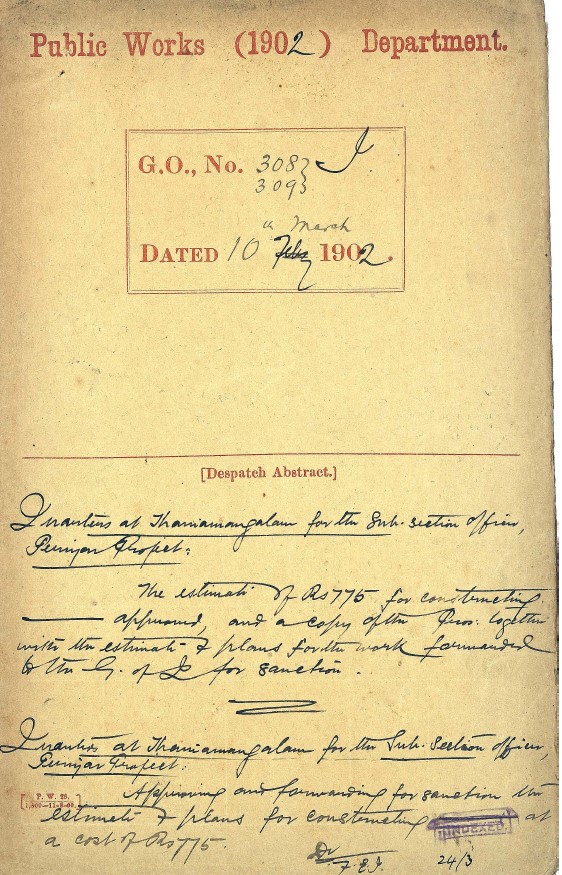 Public Works (1902) Department.
G.O., No. 308 } I
309 }
th March
DATED 10 Feby 1902.
[Despatch Abstract.]
Quarters at Thaniamangalam for the Sub-section officer,
Periyar Project:
The estimate of Rs 775 for constructing
approved, and a copy of the Pros. together
with the estimate & plans for the work forwarded
to the G. of I for sanction.
Quarters at Thaniamangalam for the Sub-Section officer,
Periyar Project:
Approving and forwarding for sanction the
estimate & plans for constructing at
a cost of Rs 775.
P. W. 25.
INDEXED.
24/3